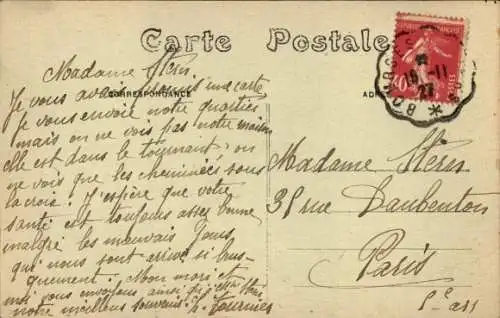 Carte Postale
CORRESPONDANCE
Madame Stern.
Je vous avais promis une carte
je vous envoie notre quartier
mais on ne vois pas notre maison
elle est dans le tournant. on
ne vois que les cheminées sous
la croix. J'espère que votre
santé est toujours assez bonne
malgré les mauvais jours
qui nous sont arrivé si brus-
quement. Mon mari et
moi vous envoyons ainsi
notre meilleurs souvenirs. Tournier
Madame Stern
35 rue Daubenton
Paris
5e arr
BOURGES
16-11
27